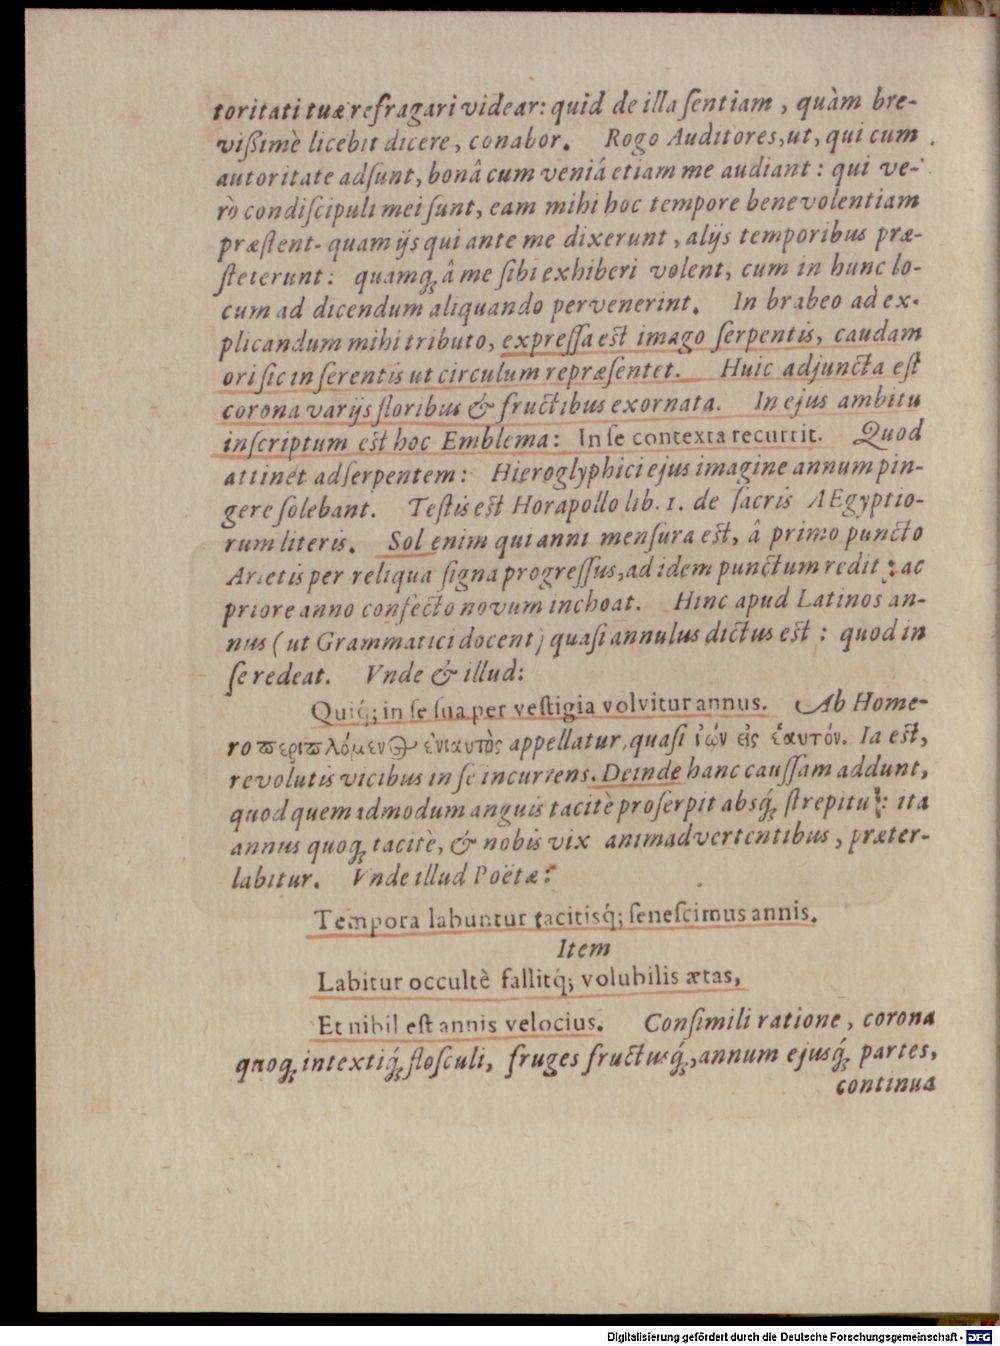 toritati tuæ refragari videar: quid de illa ſentiam, quàm bre-
viſſimè licebit dicere, conabor. Rogo Auditores, ut, qui cum
autoritate adſunt, bonâ cum veniâ etiam me audiant: qui ve-
rò condiſcipuli mei ſunt, eam mihi hoc tempore benevolentiam
præſtent- quam ijs qui ante me dixerunt, alijs temporibus præ-
ſteterunt: quamq́; â me ſibi exhiberi volent, cum in hunc lo-
cum ad dicendum aliquando pervenerint. In brabeo ad ex-
plicandum mihi tributo, expreſſa eſt imago ſerpentis, caudam
ori ſic inſerentis ut circulum repræſentet. Huic adjuncta eſt
corona varijs floribus & fructibus exornata. In ejus ambitu
inſcriptum eſt hoc Emblema: In ſe contexta recurrit. Quod
attinet ad ſerpentem: Hieroglyphici ejus imagine annum pin-
gere ſolebant. Teſtis eſt Horapollo lib. 1. de ſacris AEgyptio-
rum literis. Sol enim qui anni menſura eſt, â primo puncto
Arietis per reliqua ſigna progreſſus, ad idem punctum redit: ac
priore anno confecto novum inchoat. Hinc apud Latinos an-
nus (ut Grammatici docent) quaſi annulus dictus eſt: quod in
ſe redeat. Vnde & illud:
Quiq́; in ſe ſua per veſtigia volvitur annus. Ab Home-
ro ϖεριϖλόμενος ἐνιαυτὸς appellatur, quaſi ἰών εἰς ἑαυτόν. Id eſt,
revolutis vicibus in ſe incurrens. Deinde hanc cauſſam addunt,
quod quemadmodum anguis tacitè proſerpit absq́; ſtrepitu: ita
annus quoq́; tacitè, & nobis vix animadvertentibus, præter-
labitur. Vnde illud Poëtæ:
Tempora labuntur tacitisq́; ſeneſcimus annis.
Item
Labitur occultè fallitq́; volubilis ætas,
Et nihil eſt annis velocius. Conſimili ratione, corona
quoq́; intextiq́; floſculi, fruges fructusq́;, annum ejusq́; partes,
continua
Digitalisierung gefördert durch die Deutsche Forschungsgemeinschaft - DFG